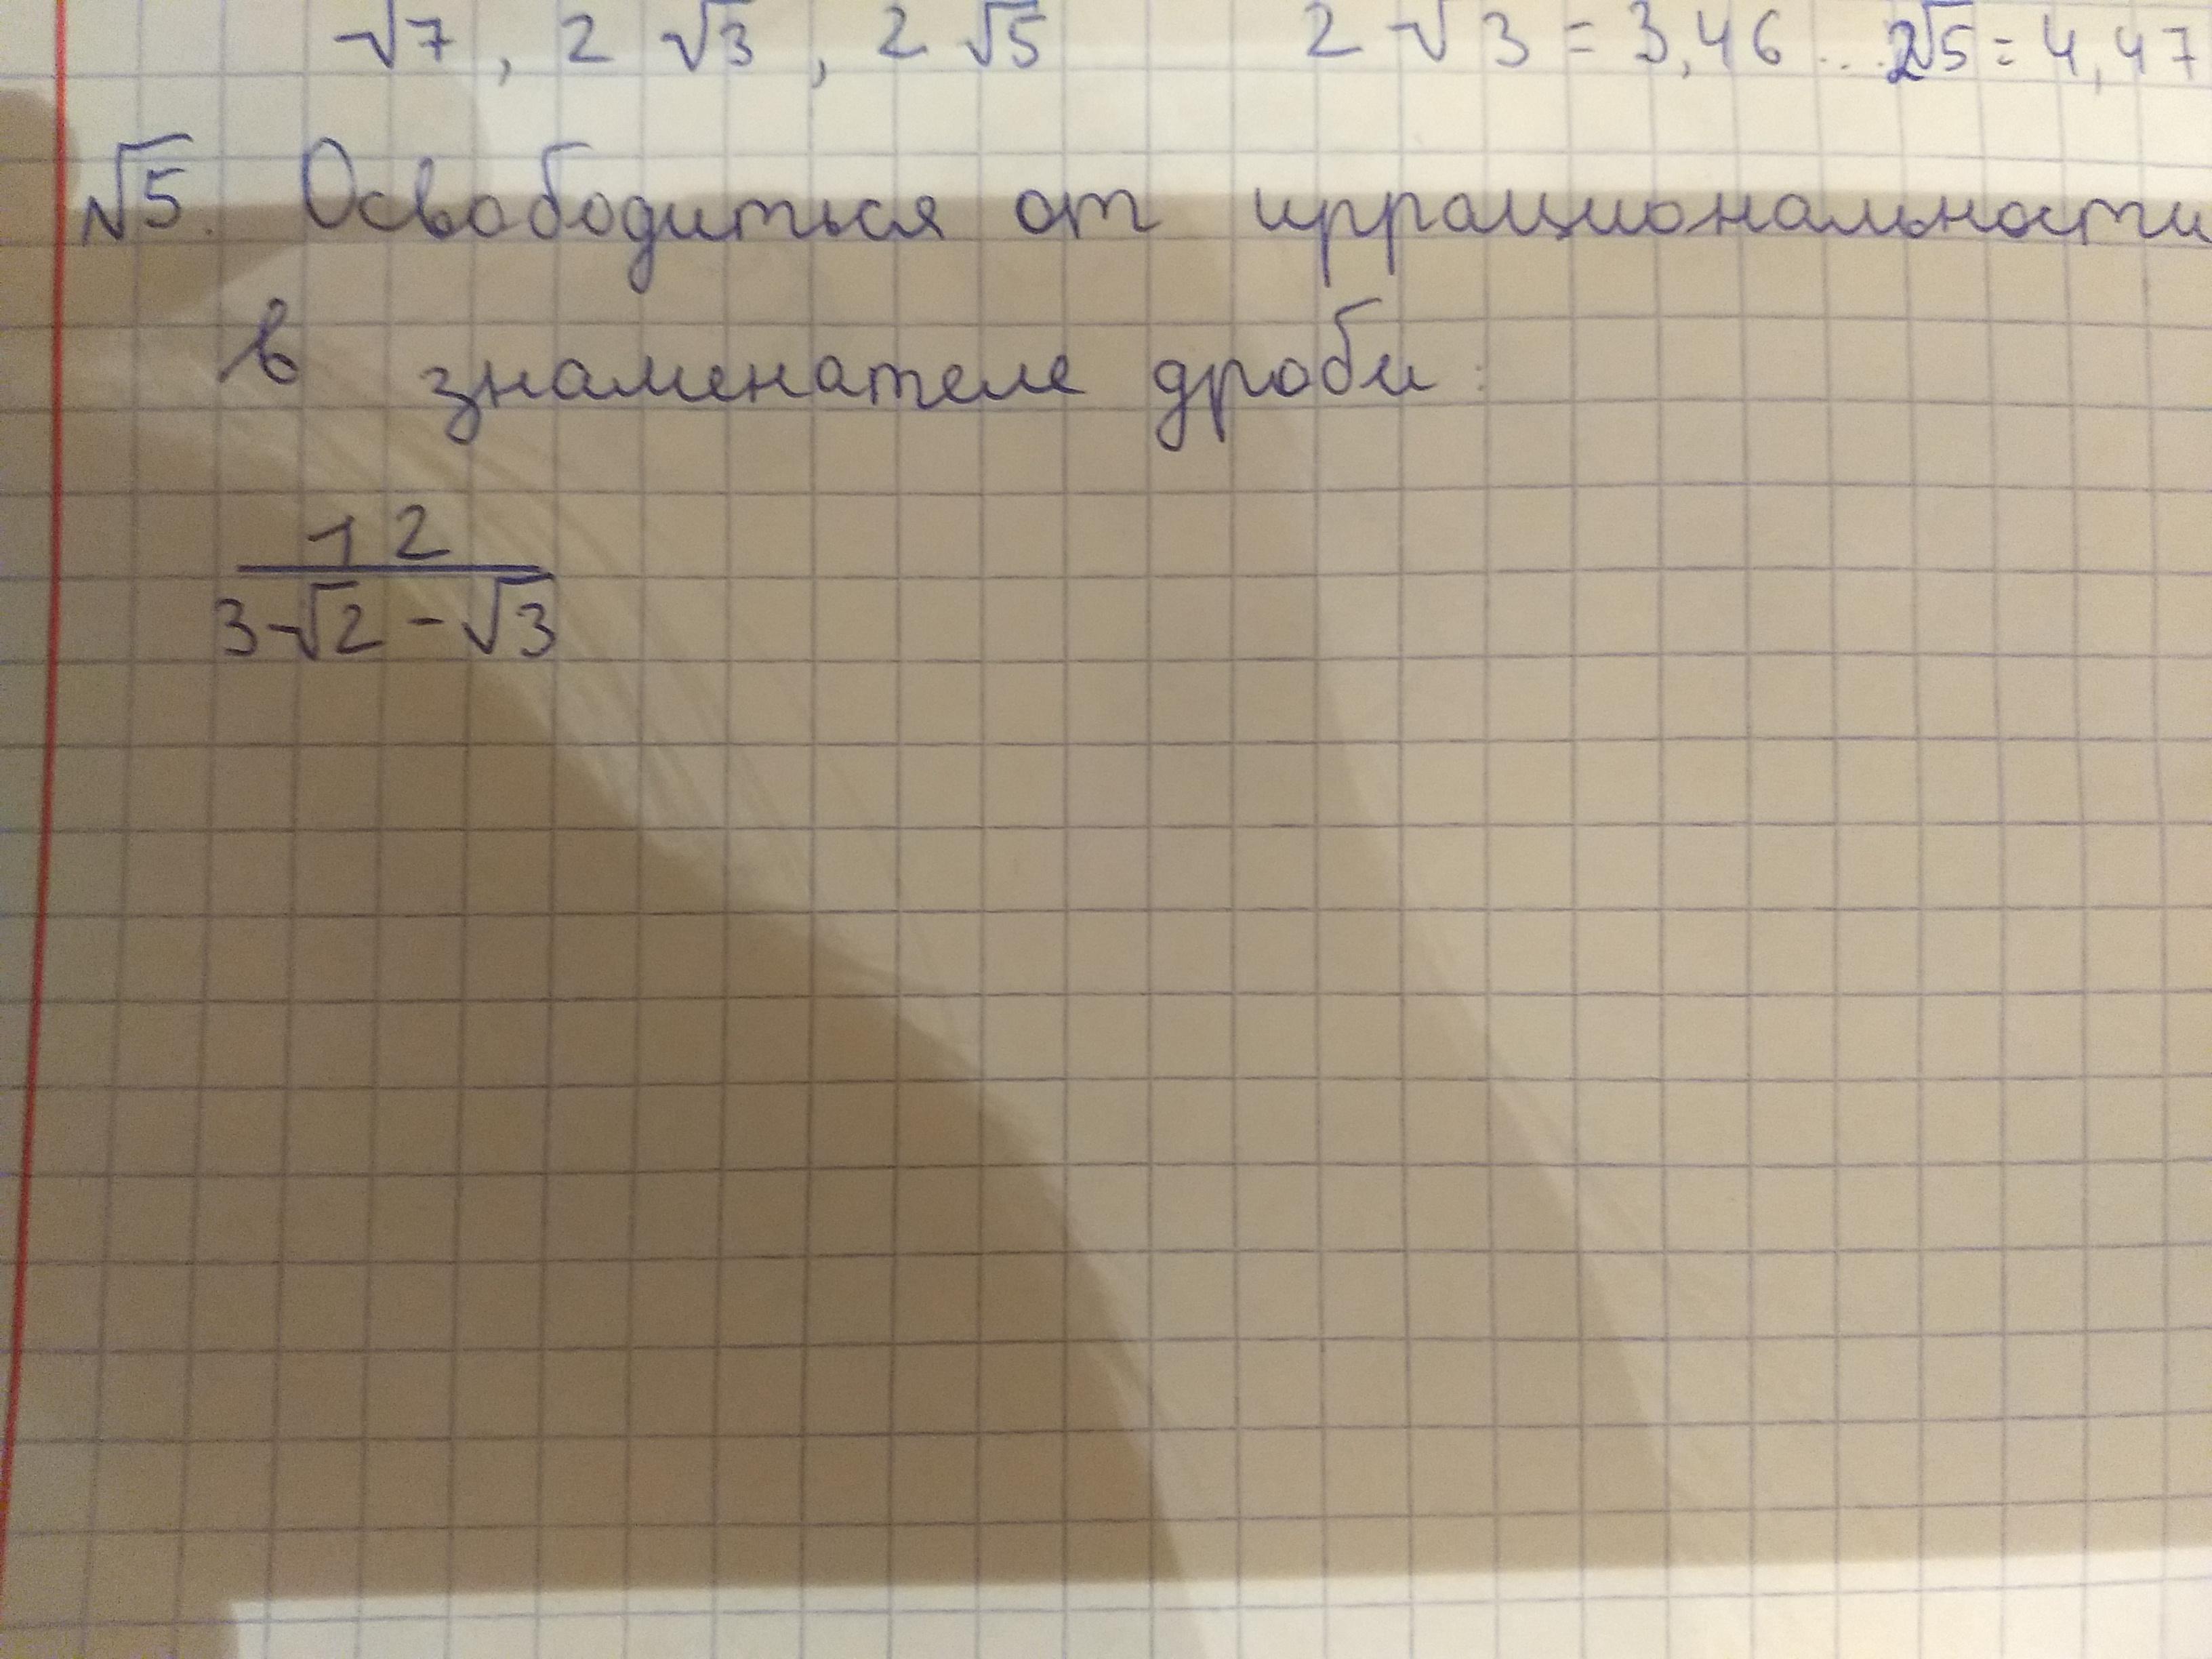 √7, 2 √3, 2 √5 2 √3 = 3,46... 2√5 = 4,47
√5. Освободиться от иррациональности
в знаменателе дроби:
12
3√2 - √3